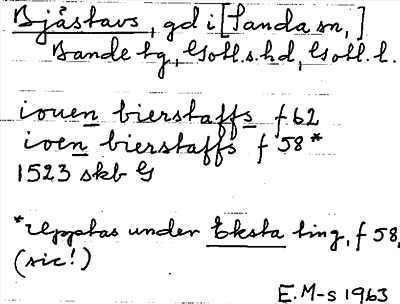 Bjåstavs, gd i [Sanda sn,]
Bande tg, Gotl.s.hd, Gotl. l.
iouen bierstaffs f 62
ioen bierstaffs f 58*
1523 skb G
*Upptas under Eksta ting, f 58,
(sic!)
E.M-s 1963